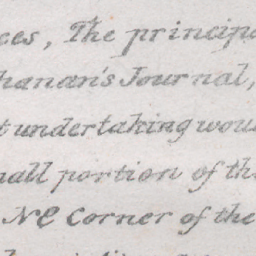 ces, The principa
hanan's Journal,
t undertaking wou
nall portion of th
NE Corner of the